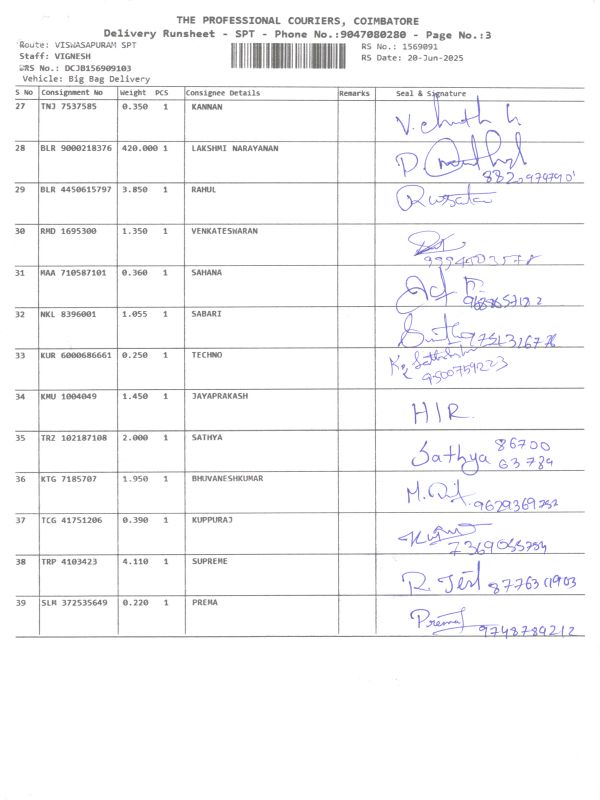 THE PROFESSIONAL COURIERS, COIMBATORE
Delivery Runsheet - SPT - Phone No.:9047080280 - Page No.:3
Route: VISWASAPURAM SPT RS No.: 1569091
Staff: VIGNESH RS Date: 20-Jun-2025
DRS No.: DCJB156909103
Vehicle: Big Bag Delivery
S No Consignment No Weight PCS Consignee Details Remarks Seal & Signature
27 TNJ 7537585 0.350 1 KANNAN
28 BLR 9000218376 420.000 1 LAKSHMI NARAYANAN
29 BLR 4450615797 3.850 1 RAHUL
30 RMD 1695300 1.350 1 VENKATESWARAN
31 MAA 710587101 0.360 1 SAHANA
32 NKL 8396001 1.055 1 SABARI
33 KUR 6000686661 0.250 1 TECHNO
9500759223
34 KMU 1004049 1.450 1 JAYAPRAKASH
H/R
35 TRZ 102187108 2.000 1 SATHYA
Sathya 86700
63789
36 KTG 7185707 1.950 1 BHUVANESHKUMAR
9629369252
37 TCG 41751206 0.390 1 KUPPURAJ
38 TRP 4103423 4.110 1 SUPREME
39 SLM 372535649 0.220 1 PREMA
Prema 9748784212